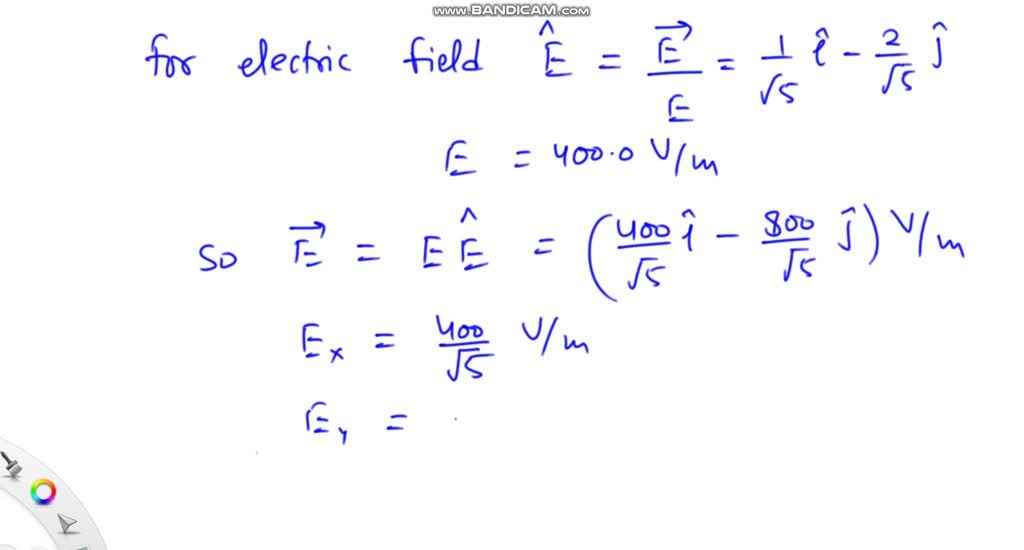 www.BANDICAM.com
for electric field Ê = E⃗/E = 1/√5 î - 2/√5 ĵ
E = 400.0 V/m
So E⃗ = E Ê = (400/√5 î - 800/√5 ĵ) V/m
Eₓ = 400/√5 V/m
Eᵧ =